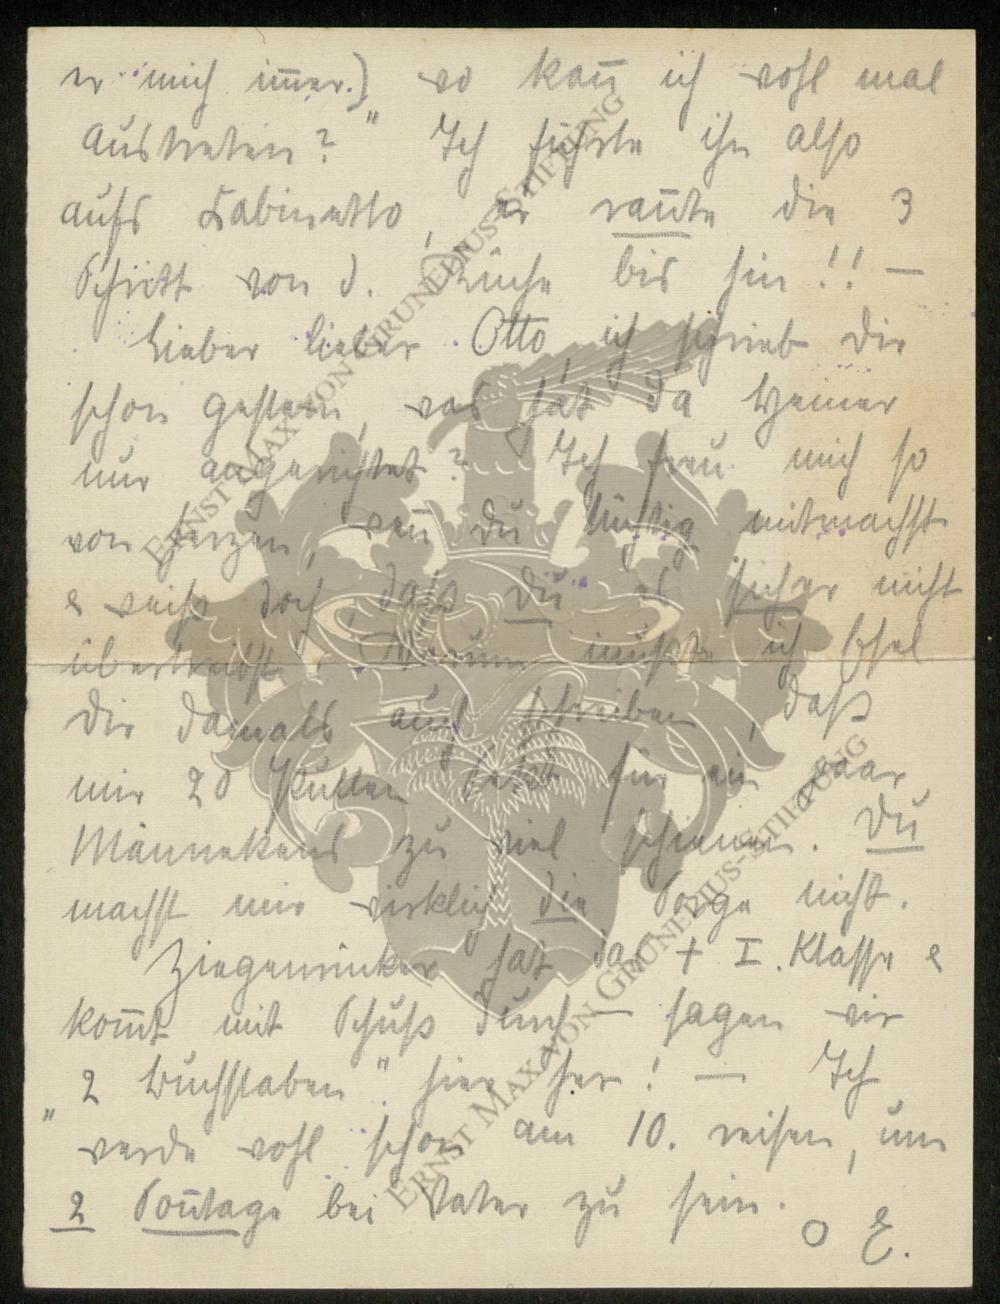 er mich im̄er.) wo kan̄ ich wohl mal
austreten?" Ich führte ihn also
aufs Kabinetto, er ran̄te die 3
Schritt von d. Küche bis hin!! —
Lieber lieber Otto, ich schrieb Dir
schon gestern, was hat da Heiner
nur angerichtet? Ich freu mich so
von Herzen, wen̄ Du lustig mitmachst
& weiß doch, daß Du es sicher nicht
übertreibst. Warum mußte ich Esel
Dir damals auch schreiben, daß
mir 20 Pullen Sekt für ein paar
Mannekens zu viel schienen. Du
machst mir wirklich die Sorge nicht.
Ziegenrücker hat das + I. Klasse &
kom̄t mit Schuß durch — sagen wir
"2 Buchstaben" hier her! — Ich
werde wohl schon am 10. reisen, um
2 Son̄tage bei Vater zu sein.
O E.
Ernst Max von Grunelius-Stiftung
Ernst Max von Grunelius-Stiftung